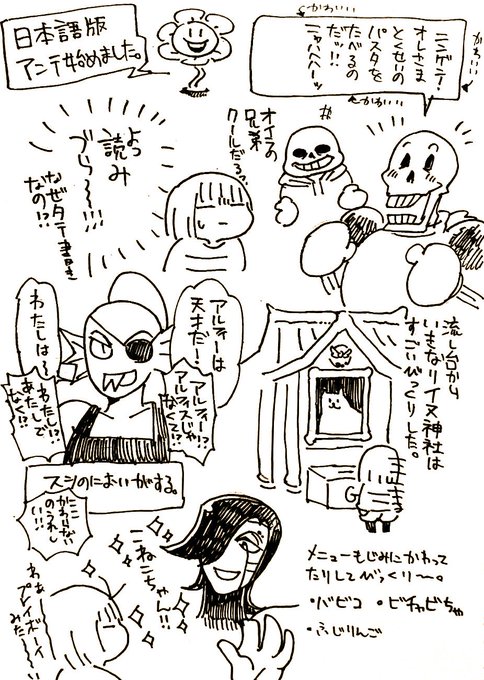 日本語版
アンテ始めました。
かわいい
かわいい
かわいい
ニンゲン!
オレさま
とくせいの
パスタを
たべるの
だッ!!
ニャハハハーッ
オイラの
兄弟
クールだろ?
よっ
読み
づら〜〜!!!
なぜタテ書き
なの!?
アルフィーは
天才だー!
アルフィー!?
アルフィスじゃ
なくて!?
わたしは〜
わたし!?
あたしで
なく!?
流し台から
いきなりイヌ神社は
すごいびっくりした。
G
スシのにおいがする。
ここ
かわらない
のうれし
い!!
こねこちゃん!!
わぁ
プレイボーイ
みた〜い
メニューもじみにかわって
たりしてびっくり〜。
・バビコ ・ビチャビちゃ
・ふじりんご